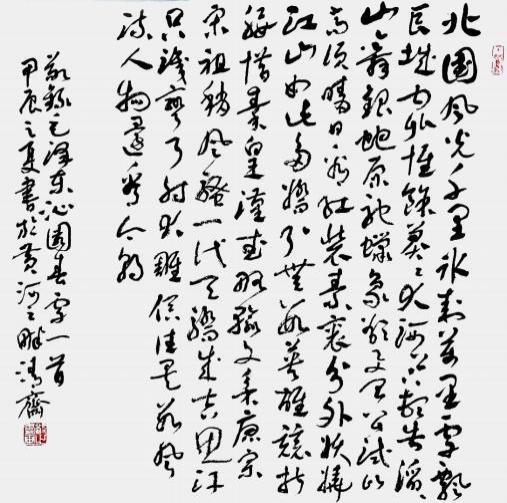 北國風光千里冰封萬里雪飄
長城内外惟餘莽々大河上下頓失滔々
山舞銀蛇原馳蠟象欲与天公試比
高須晴日看紅裝素裹分外妖嬈
江山如此多嬌引無數英雄競折
腰惜秦皇漢武略輸文采唐宗
宋祖稍風騷一代天驕成吉思汗
只識彎弓射大雕俱往矣數風
流人物還看今朝
敬錄毛澤東沁園春雪一首
甲辰之夏書於黄河之畔齋